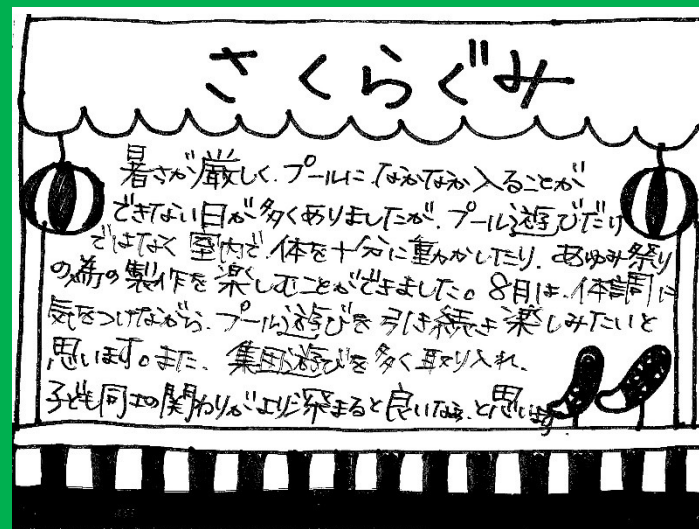 さくらぐみ
暑さが厳しく、プールになかなか入ることが
できない日が多くありましたが、プール遊びだけ
ではなく室内で、体を十分に動かしたり、あゆみ祭り
の為の製作を楽しむことができました。8月は、体調に
気をつけながら、プール遊びを引き続き楽しみたいと
思います。また、集団遊びを多く取り入れ、
子ども同士の関わりがより深まると良いなぁ、と思います